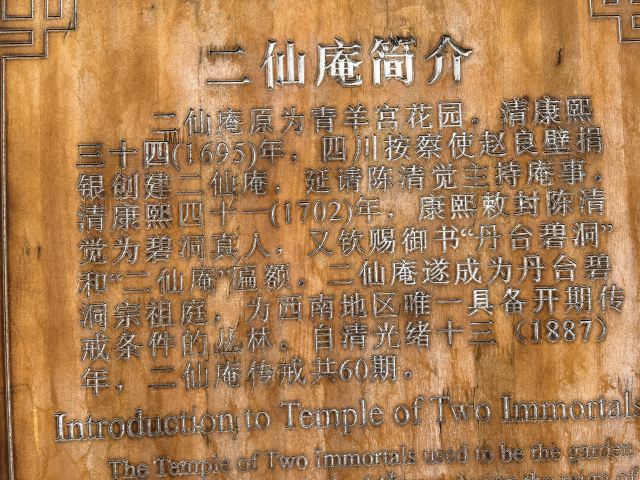 二仙庵简介
二仙庵原为青羊宫花园。清康熙
三十四(1695)年，四川按察使赵良璧捐
银创建二仙庵，延请陈清觉主持庵事。
清康熙四十一(1702)年，康熙敕封陈清
觉为碧洞真人，又钦赐御书“丹台碧洞”
和“二仙庵”匾额，二仙庵遂成为丹台碧
洞宗祖庭，为西南地区唯一具备开期传
戒条件的丛林。自清光绪十三（1887）
年，二仙庵传戒共60期。
Introduction to Temple of Two Immortals
The Temple of Two Immortals used to be the garden
during the reign of